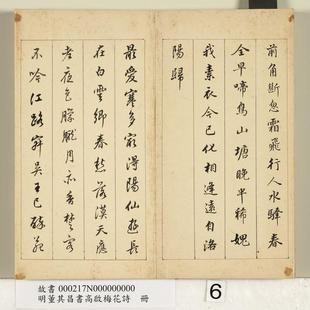 前角斷忽霜飛行人水驛春
全早啼鳥山塘晚半稀愧
我素衣今已化相逢遠自洛
陽歸
最愛寒多最得陽仙遊長
在白雲鄉春愁寂寞天應
老夜色朦朧月亦香楚客
不吟江路寂吳王已醉苑
6
故書 000217N000000000
明董其昌書高啟梅花詩 冊